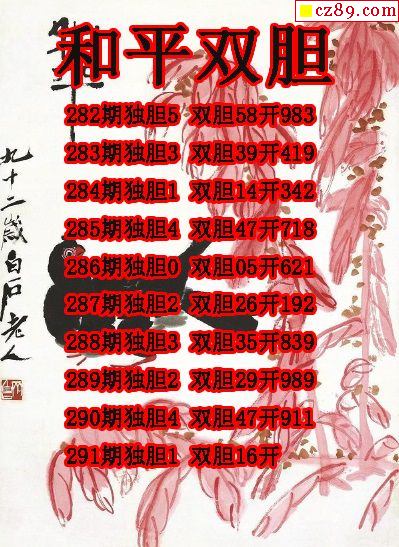 cz89.com
和平双胆
282期独胆5 双胆58开983
283期独胆3 双胆39开419
284期独胆1 双胆14开342
285期独胆4 双胆47开718
286期独胆0 双胆05开621
287期独胆2 双胆26开192
288期独胆3 双胆35开839
289期独胆2 双胆29开989
290期独胆4 双胆47开911
291期独胆1 双胆16开
九十二岁白石老人